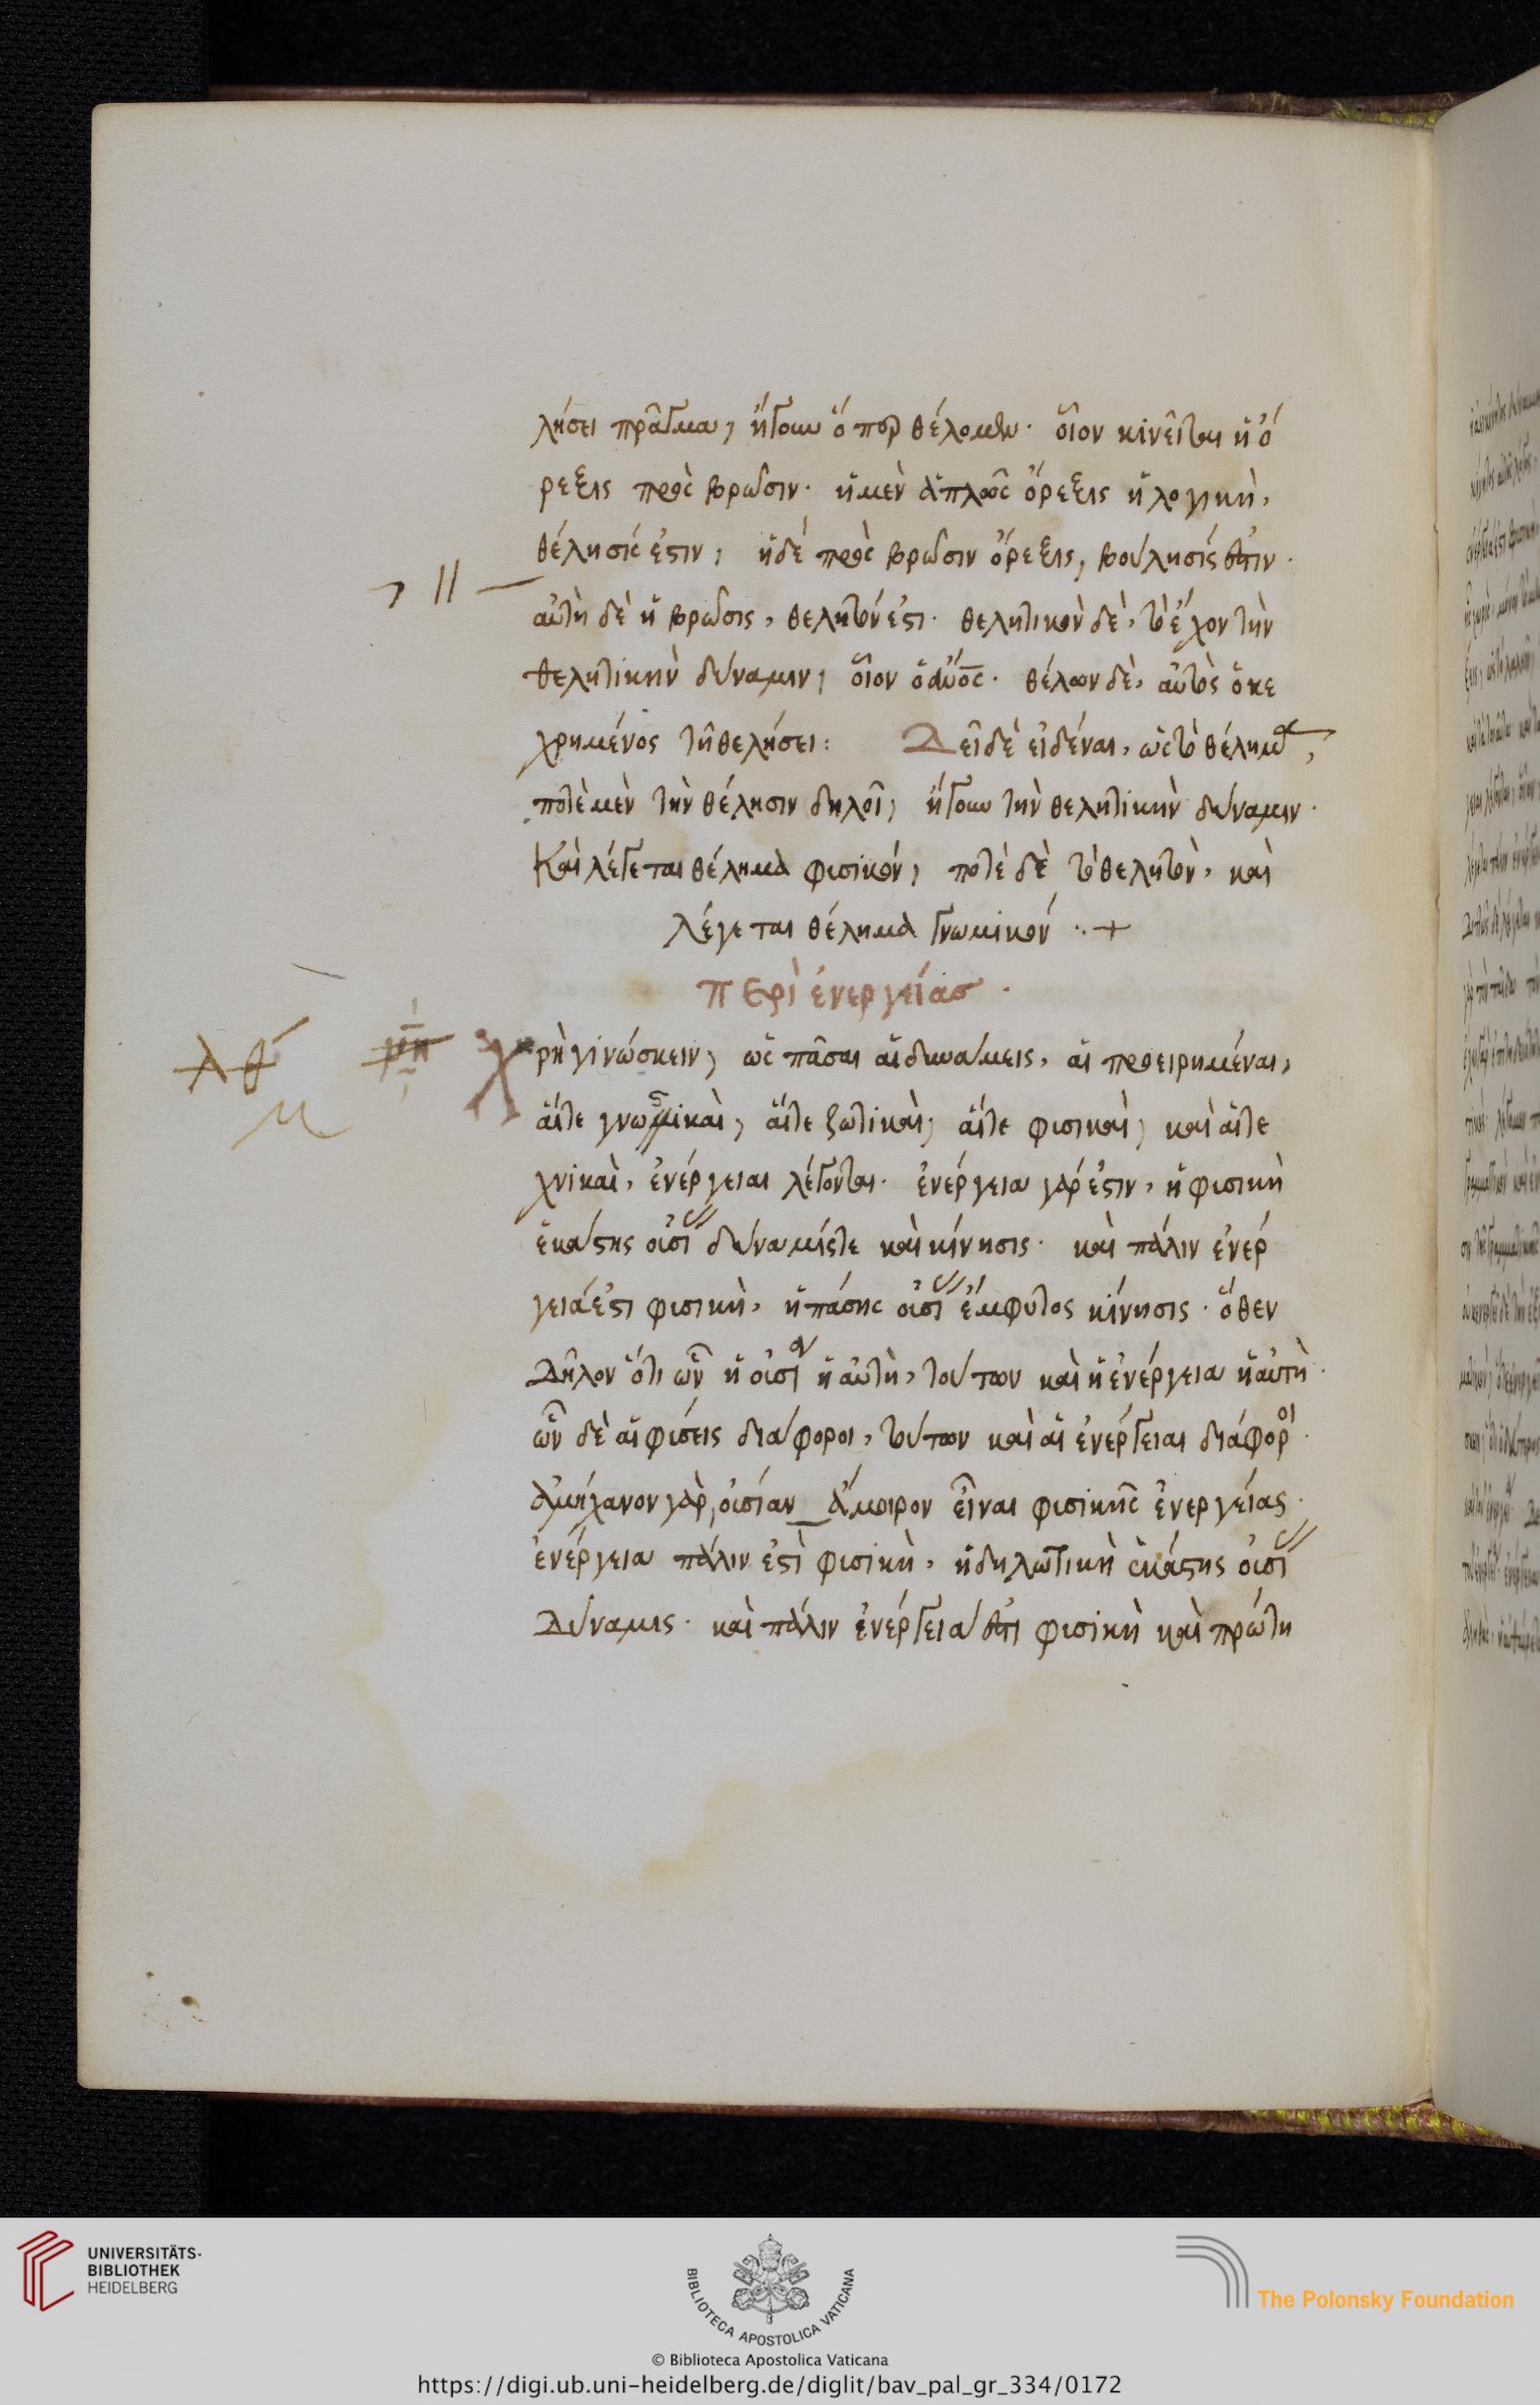 λήσει πρᾶγμα, ἤγουν ὅπερ θέλομεν· οἷον κινεῖται ἡ ὄ
ρεξις πρὸς βρῶσιν· ἡ μὲν ἁπλῶς ὄρεξις ἡ λογικὴ,
θέλησίς ἐστιν, ἡ δὲ πρὸς βρῶσιν ὄρεξις, βούλησίς ἐστιν·
αὐτὴ δὲ ἡ βρῶσις, θελητόν ἐστι· θελητικὸν δὲ, τὸ ἔχον τὴν
θελητικὴν δύναμιν, οἷον ὁ ἄνος· θέλων δὲ, αὐτὸς ὁ κε
χρημένος τῆ θελήσει: Δεῖ δὲ εἰδέναι, ὡς τὸ θέλημα,
ποτὲ μὲν τὴν θέλησιν δηλοῖ, ἤγουν τὴν θελητικὴν δύναμιν·
Καὶ λέγεται θέλημα φυσικόν, ποτὲ δὲ τὸ θελητὸν, καὶ
λέγεται θέλημα γνωμικόν ∴ +
περὶ ἐνεργείασ ·
λθ΄ μη Χρὴ γινώσκειν, ὡς πᾶσαι αἱ δυνάμεις, αἱ προειρημέναι,
μ αἵτε γνωστικαὶ, αἵτε ζωτικαὶ, αἵτε φυσικαὶ, καὶ αἵτε
χνικαὶ, ἐνέργειαι λέγονται· ἐνέργεια γάρ ἐστιν, ἡ φυσικὴ
ἑκάστης οὐσί δύναμίς τε καὶ κίνησις· καὶ πάλιν ἐνέρ
γειά ἐστι φυσικὴ, ἡ πάσης οὐσί ἔμφυτος κίνησις· ὅθεν
Δῆλον ὅτι ὧν ἡ οὐσία ἡ αὐτὴ, τούτων καὶ ἡ ἐνέργεια ἡ αὐτὴ·
ὧν δὲ αἱ φύσεις διάφοροι, τούτων καὶ αἱ ἐνέργειαι διάφοροι·
ἀμήχανον γὰρ, οὐσίαν ἄμοιρον εἶναι φυσικῆς ἐνεργείας·
ἐνέργεια πάλιν ἐστὶ φυσικὴ, ἡ δηλωτικὴ ἑκάστης οὐσί
Δύναμις· καὶ πάλιν ἐνέργειά ἐστι φυσικὴ καὶ πρώτη
UNIVERSITÄTS-
BIBLIOTHEK
HEIDELBERG
BIBLIOTECA APOSTOLICA VATICANA
The Polonsky Foundation
© Biblioteca Apostolica Vaticana
https://digi.ub.uni-heidelberg.de/diglit/bav_pal_gr_334/0172